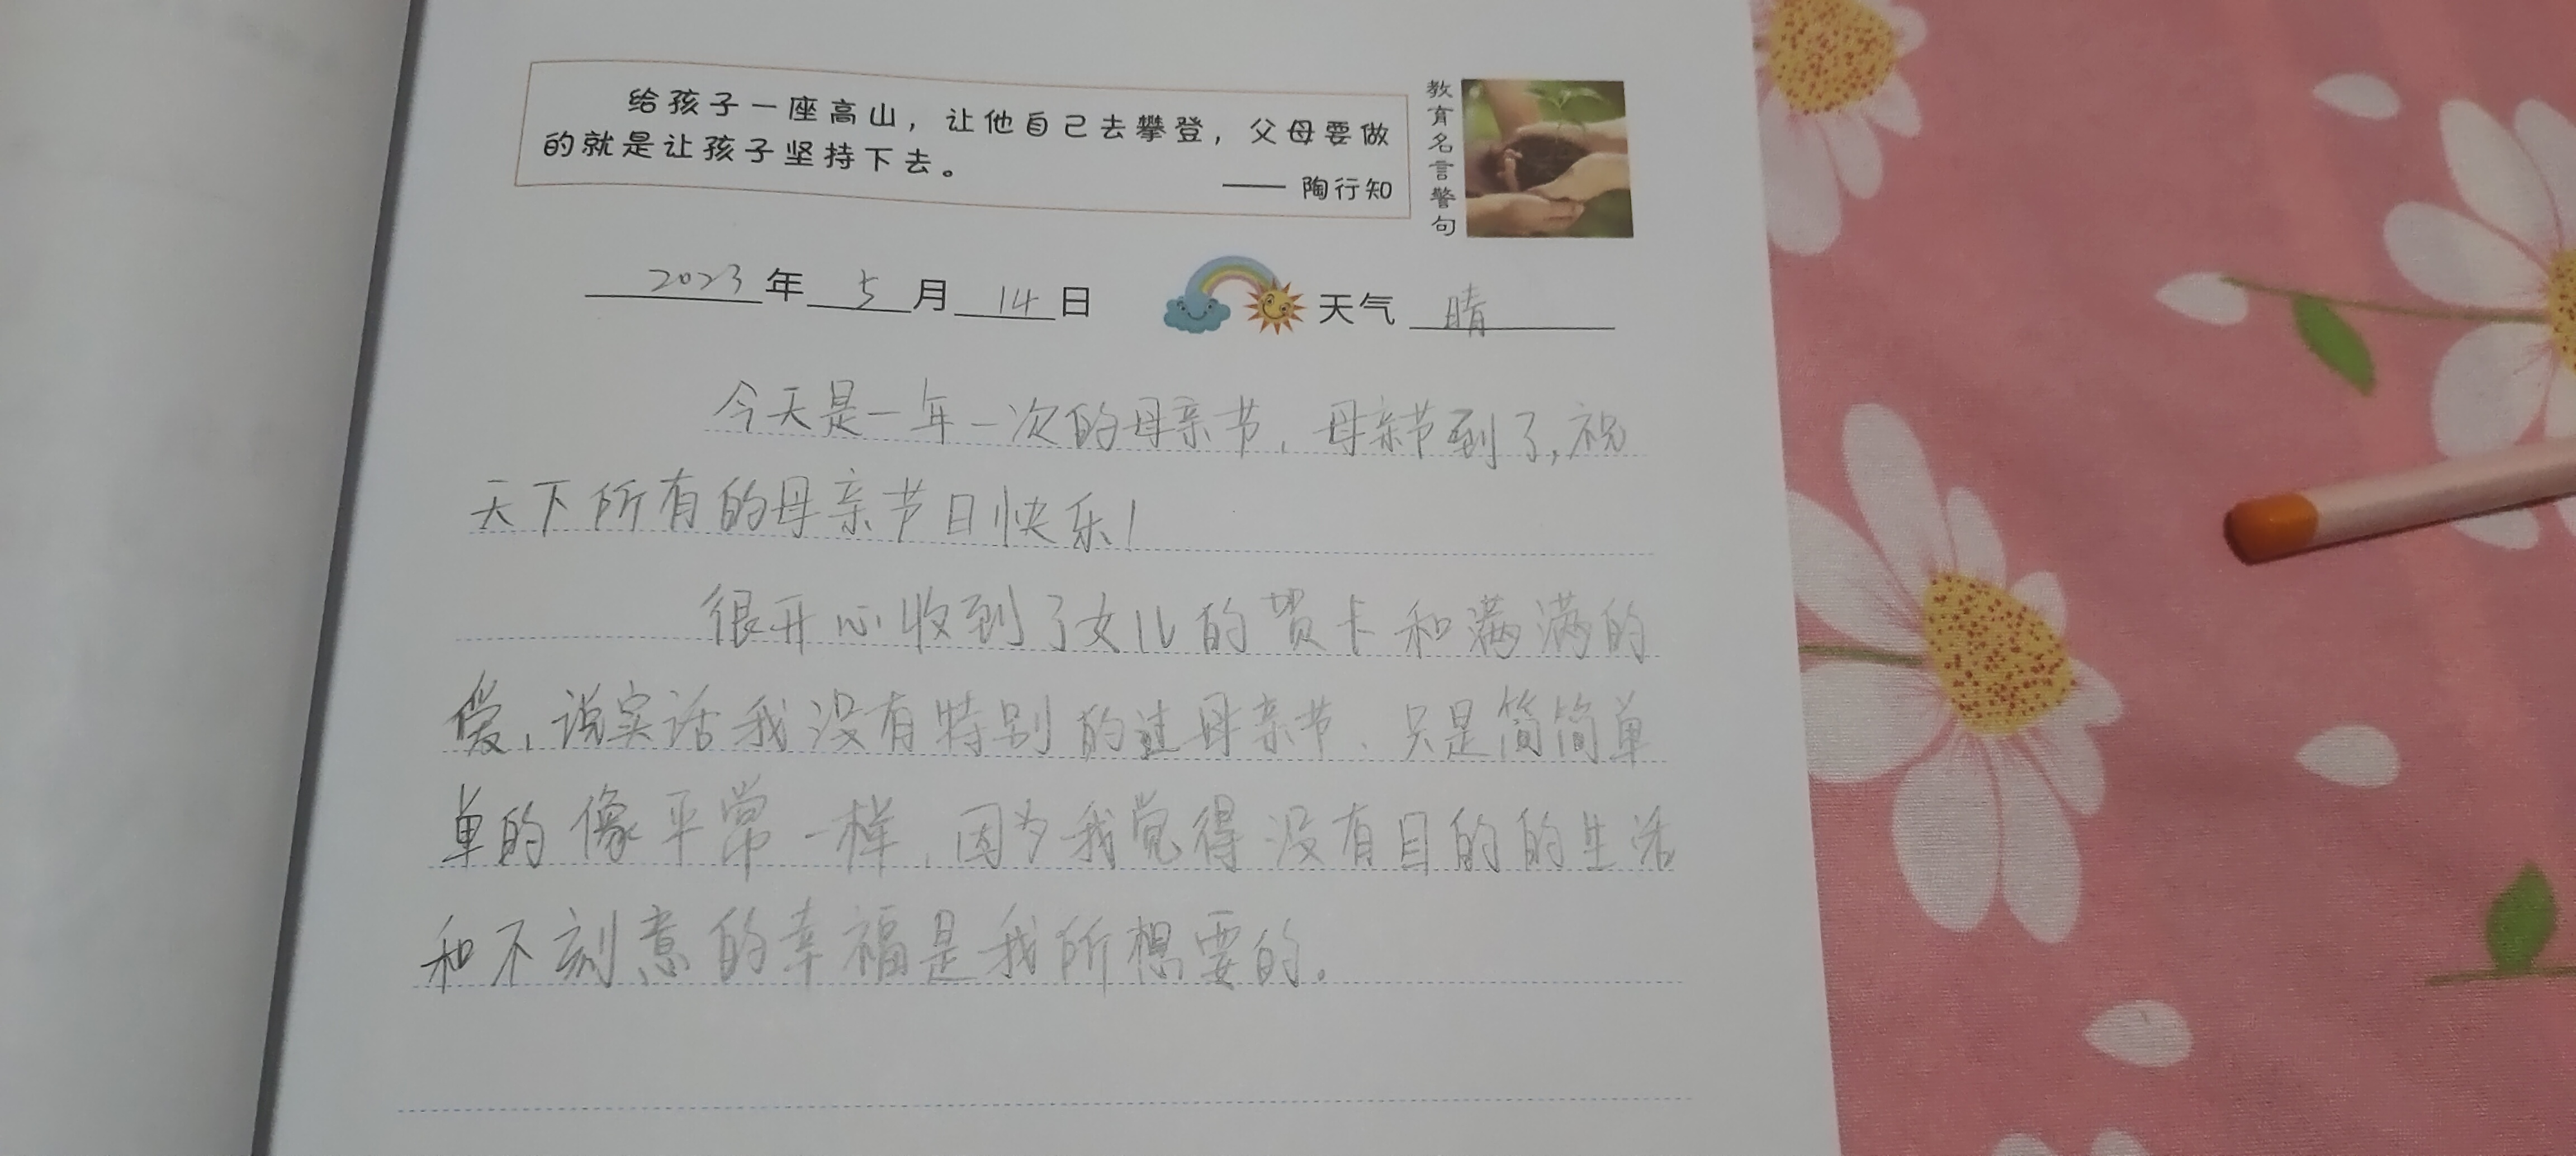 给孩子一座高山，让他自己去攀登，父母要做
的就是让孩子坚持下去。
—— 陶行知
教育名言警句
2023年5月14日 天气 晴
今天是一年一次的母亲节，母亲节到了，祝
天下所有的母亲节日快乐！
很开心收到了女儿的贺卡和满满的
爱，说实话我没有特别的过母亲节，只是简简单
单的像平常一样，因为我觉得没有目的的生活
和不刻意的幸福是我所想要的。